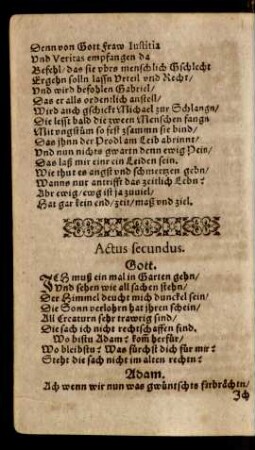 Denn von Gott fraw Iustitia
Vnd Veritas empfangen da
Befehl/ das sie vbrs menschlich Gschlecht
Ergehn solln lassn Vrteil vnd Recht/
Vnd wird befohlen Gabriel/
Das er alls ordentlich anstell/
Wird auch gschickt Michael zur Schlangn/
Die lesst bald die zween Menschen fangn
Mit vngstüm so fest zsammn sie bind/
Das jhnn der Prodlam Leib abrinnt/
Vnd nun nichts gwartn denn ewig Pein/
Das laß mir einr ein Leiden sein.
Wie thut es angst vnd schmertzen gebn/
Wanns nur antrifft das zeitlich Lebn?
Abr ewig/ ewg ist ja zuuiel/
Hat gar kein end/ zeit/ maß vnd ziel.
Actus secundus.
Gott.
ICH muß ein mal in Garten gehn/
Vnd sehen wie all sachen stehn/
Der Himmel deucht mich dunckel sein/
Die Sonn verlohrn hat jhren schein/
All Creaturn sehr trawrig sind/
Die sach ich nicht rechtschaffen find.
Wo bistu Adam? kom̃ herfür/
Wo bleibstu? Was fürchst dich für mir?
Steht die sach nicht im alten rechtn?
Adam.
Ach wenn wir nun was gwüntschts fürbrächtn/
Ich